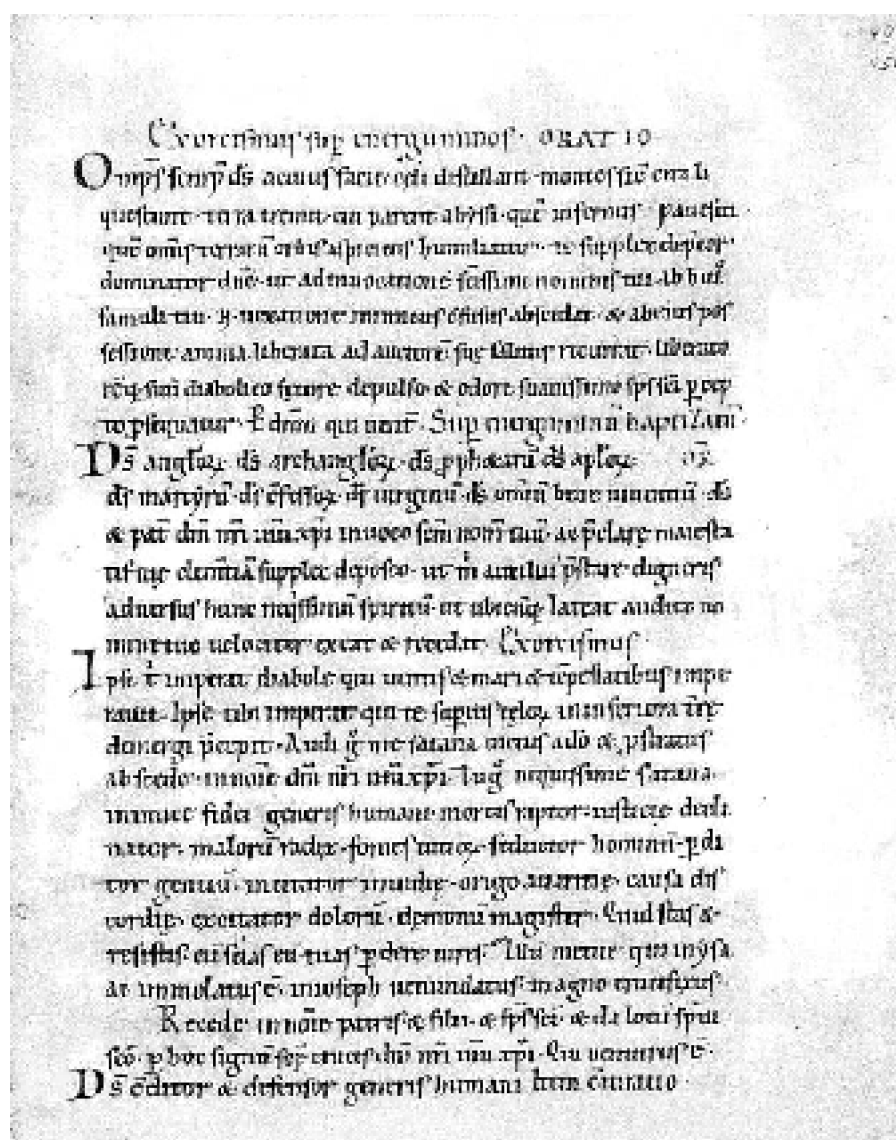 Exorcismus sup energuminos · ORATIO
Omps semp ds a cuius facie celi distillant · montes sic cera li
quescunt · terra tremit · cui patent abyssi · que infernus pauescit ·
que omis terraru orbis aspiciens humiliatur · te supplex depcor
dominator dne · ut ad inuocatione scissimi nominis tui ab huius
famuli tui · uexatione inimicus cfusus abscedat · & ab eius pos
sessione anima liberata ad auctore sue salutis recurrat · liberato
req; sui diabolico fetore depulso & odore suauissimo sps sci pcep
to psequatur · P dnm qui uent · Sup energuminu baptizatu ·
Ds angloz · ds archangloz · ds pphetaru ds aploz · oz
ds martyru · ds cfessoz · ds uirginu · ds omiu bene uiuentiu · ds
& pat dni nri ihu xpi inuoco scm nom tuu · ac pclare maiesta
tis tue clemtia supplex deposco · ut m auxiliu pstare digneris
aduersus hunc neqssimu spiritu · ut ubicuq; lateat audito no
mine tuo uelociter exeat & recedat · Exorcismus ·
Ipse t imperat diabole qui uentis & mari & tepestatibus impe
rauit · Ipse tibi imperat qui te supnis celoz in inferiora tre
demergi pcepit · Audi g me satana uictus ado & pstratus
abscedo · in noie dni nri ihu xpi · Tu g nequissime satana
inimice fidei generis humani mortis raptor · iusticie decli
nator · maloru radix · fomes uitioz · seductor hominu · pdi
tor gentiu · incitator inuidie · origo auaritie · causa dis
cordie · excitator doloru · demonu magister · Quid stas &
resistis cu scias eu tuas pdere uires · Illu metue qui in ysa
ac immolatus e · in ioseph uenundatus in agno crucifixus ·
Recede in noie patris & filii & sps sci · & da locu spui
sco · p hoc signu sce crucis · ihu nri ihu xpi · Qui uenturus e ·
Ds cditor & defensor generis humani hem